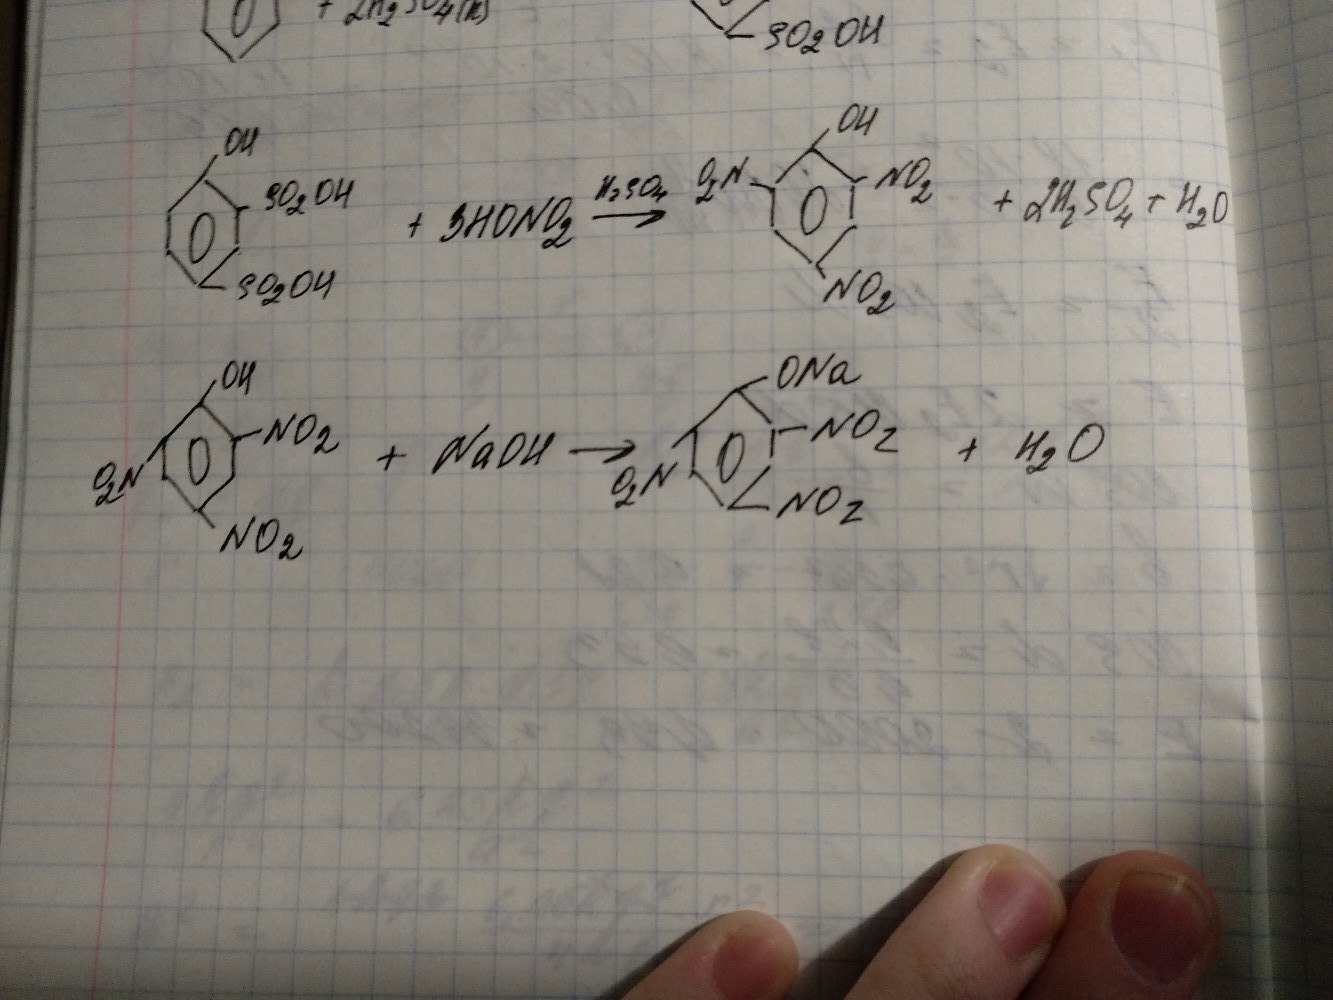 + 2H2SO4(к)
SO2OH
OH
SO2OH
SO2OH
+ 3HONO2 H2SO4 →
OH
O2N
NO2
NO2
+ 2H2SO4 + H2O
OH
NO2
O2N
NO2
+ NaOH →
ONa
NO2
O2N
NO2
+ H2O